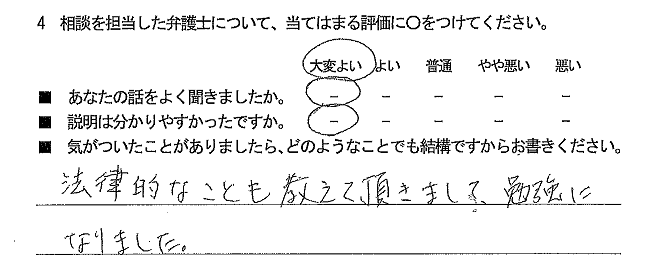 4 相談を担当した弁護士について、当てはまる評価に〇をつけてください。
大変よい よい 普通 やや悪い 悪い
■ あなたの話をよく聞きましたか。 － － － － －
■ 説明は分かりやすかったですか。 － － － － －
■ 気がついたことがありましたら、どのようなことでも結構ですからお書きください。
法律的なことも教えて頂きまして、勉強に
なりました。